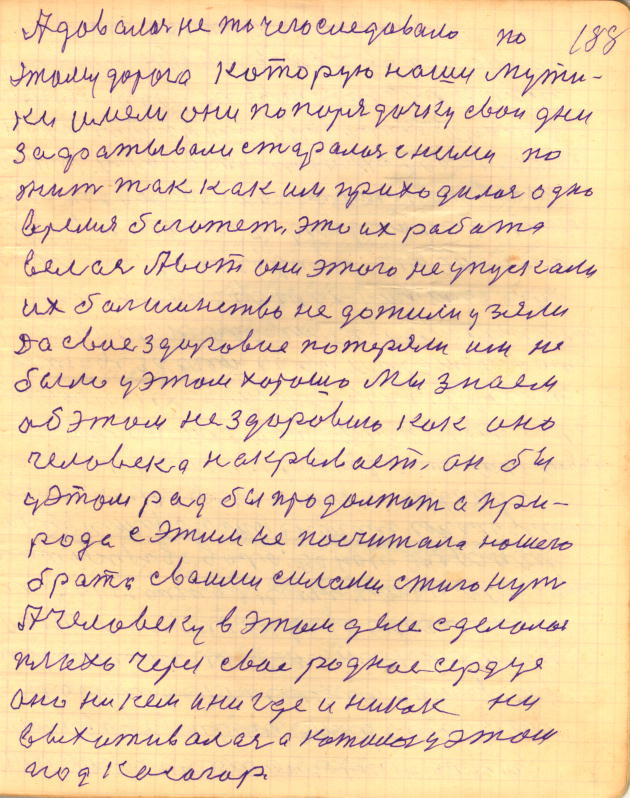 Адовалоя не то чего следовало по 188
этому дорога которую наши мути-
ки имели они попорядочку свои дни
задратывали старалоя с ними по
жит так как им приходилоя одно
время богатет, это их работа
велоя Авот они этого не упускали
их болшинство не дожили узяли
Да свое здоровие потеряли им не
было у этом хорошо Мы знаем
об этом нездоровию как оно
человека накрывает, он бы
у этом рад бы продолжат а при-
рода с этим не посчитала нашего
брата своими силами стигонут
Ачеловеку в этом деле сделолоя
плохо через свое родное сердце
оно никем инигде и никак ни
выхитивалоя а котилоя у этом
под косогор.